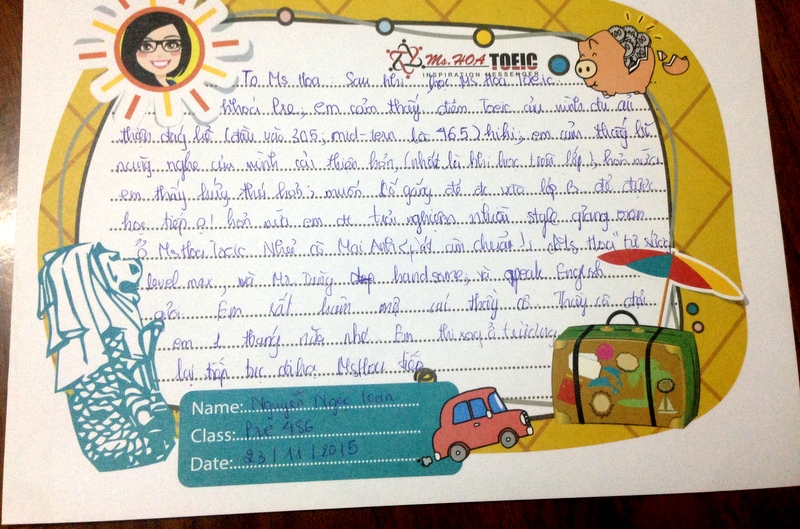 Ms. HOA TOEIC
INSPIRATION MESSENGER
To Ms Hoa Sau khi học Ms Hoa Toeic
khoá Pre, em cảm thấy điểm Toeic của mình đc cải
thiện đáng kể (đầu vào 305, mid-term là 465) hihi, em cảm thấy kĩ
năng nghe của mình cải thiện hơn (nhất là khi học trên lớp), hơn nữa
em thấy hứng thú hơn, muốn cố gắng để đc vào lớp B để được
học tiếp ạ! hơn nữa em đc trải nghiệm nhiều style giảng
ở Ms Hoa Toeic Như cô Mai Anh (phát âm chuẩn), chị Ms Hoa "tự sướng"
level max, và Mr. handsome, và speak English
giỏi. Em rất các thầy cô. Thầy cô đợi
em 1 tháng nữa nhé Em thi xong ở trường
lại tiếp tục đi học MsHoa tiếp
Name: Nguyễn Ngọc Toàn
Class: Pre 486
Date: 23/11/2015